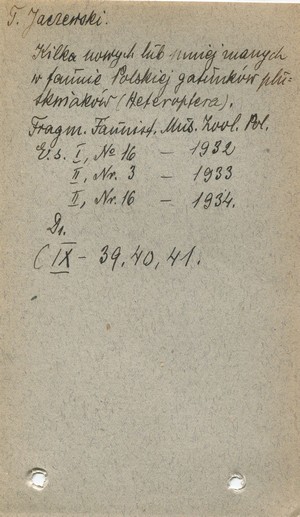 T. Jaczewski.
Kilka nowych lub mniej znanych
w faunie Polskiej gatunków plu=
skwiaków (Heteroptera).
Fragm. Faunist. Mus. Zool. Pol.
I, № 16 — 1932
II, Nr. 3 — 1933
II, Nr. 16 — 1934.
(IX - 39, 40, 41.